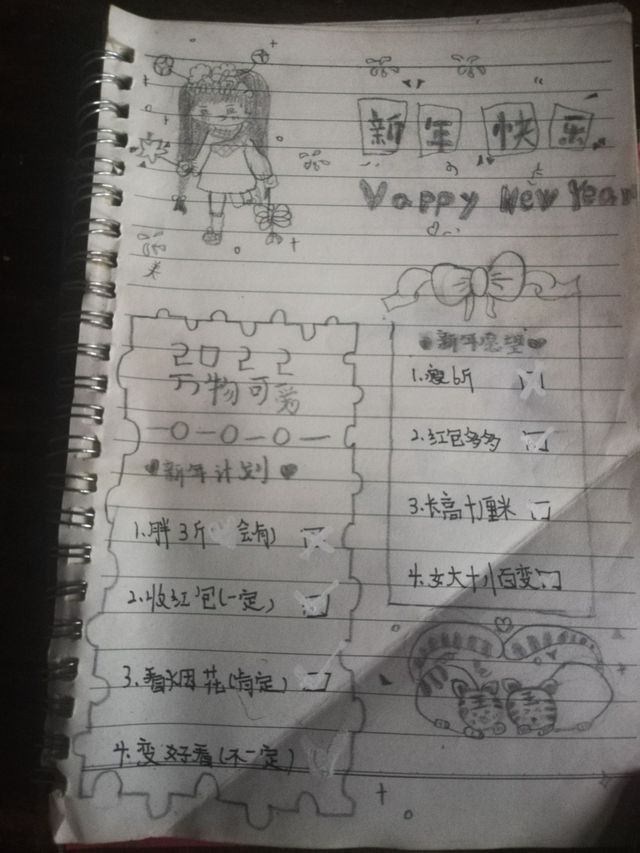 新年快乐
Vappy New Year
2022
万物可爱
新年计划
1.胖3斤(会有)
2.收红包(一定)
3.看烟花(肯定)
4.变好看(不一定)
新年愿望
1.瘦6斤
2.红包多多
3.长高十厘米
4.女大十八百变